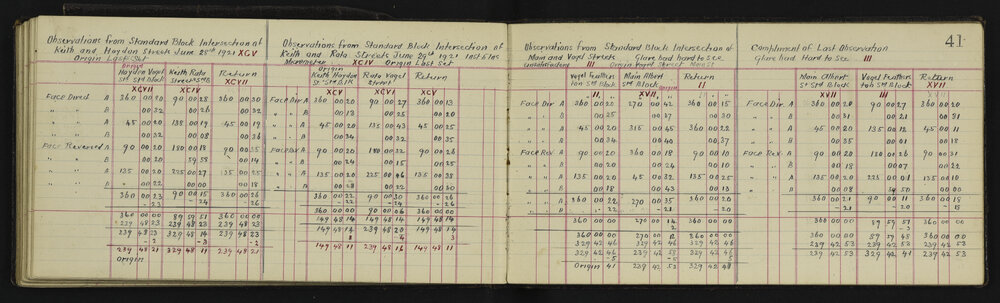 41
Observations from Standard Block Intersection of
Keith and Haydon Streets June 28th 1921 XCV
Origin Last Set
Origin
Haydon Vogel Keith Rata Return
XCVII XCIV XCVII
Face Direct A 360 00 30 90 00 28 360 00 30
" " B 00 32 00 26 00 32
" " A 45 00 20 135 00 19 45 00 19
" " B 00 32 00 08 00 36
Face Reversed A 90 00 20 180 00 18 90 00 35
" " B 00 20 59 58 00 14
" " A 135 00 20 225 00 27 135 00 25
" " B 00 22 00 00 00 18
360 00 23 90 00 15 360 00 26
360 00 00 89 57 51 360 00 00
239 48 23 239 48 23 239 48 23
239 48 23 329 48 14 239 48 23
239 48 21 329 48 11 239 48 21
Origin
Observations from Standard Block Intersection of
Keith and Rata Streets June 29th 1921
Micrometer XCIV Origin Last Set
Origin
Keith Haydon Rata Vogel Return
XCV XCVI XCV
Face Dir A 360 00 20 90 00 27 360 00 13
" " B 00 13 00 25 00 20
" " A 45 00 20 135 00 43 45 00 25
" " B 00 34 00 32 00 35
Face Rev A 90 00 20 180 00 32 90 00 26
" " B 00 24 00 15 00 25
" " A 135 00 20 225 00 46 135 00 38
" " B 00 28 00 22 00 20
360 00 22 90 00 30 360 00 26
360 00 00 90 00 06 360 00 00
149 48 14 149 48 14 149 48 14
149 48 14 239 48 20 149 48 14
149 48 11 239 48 16 149 48 11
Observations from Standard Block Intersection of
Main and Vogel Streets Glare bad hard to see
III
Vogel Main Albert Return
II XVII II
Face Dir A 360 00 20 270 00 42 360 00 15
" " B 00 25 00 37 00 30
" " A 45 00 20 315 00 45 360 00 22
" " B 00 34 00 40 00 37
Face Rev A 90 00 20 360 00 18 90 00 10
" " B 00 20 00 24 00 10
" " A 135 00 20 45 00 32 135 00 25
" " B 00 18 00 43 00 13
360 00 22 270 00 35 360 00 20
360 00 00 270 00 14 360 00 00
360 00 00 270 00 12 360 00 00
329 42 46 329 42 46 329 42 46
329 42 46 239 42 58 329 42 46
Origin 41 239 42 53 329 42 48
Compliment of Last Observation
Glare bad Hard to See III
Main Albert Vogel Return
XVII II XVII
Face Dir A 360 00 20 90 00 27 360 00 20
" " B 00 31 00 21 00 31
" " A 45 00 20 135 00 12 45 00 11
" " B 00 35 00 01 00 18
Face Rev A 90 00 20 180 00 26 90 00 31
" " B 00 20 00 07 00 28
" " A 135 00 20 225 00 01 135 00 10
" " B 00 08 59 50 00 00
360 00 21 90 00 11 360 00 18
360 00 00 89 59 51 360 00 00
239 42 53 239 42 53 239 42 53
239 42 53 329 42 41 239 42 53